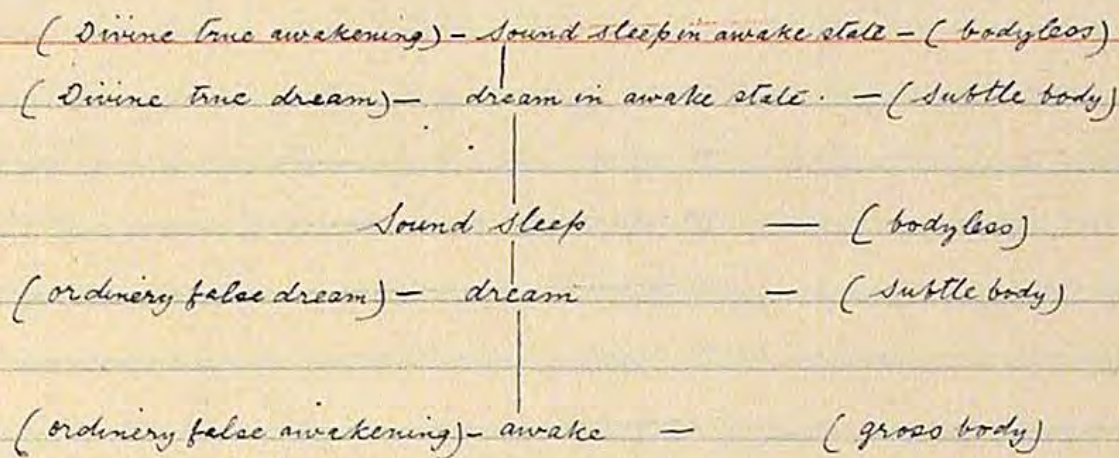 ( Divine true awakening) - Sound sleep in awake state - ( bodyless)
( Divine true dream) - dream in awake state. - (Subtle body)
Sound sleep — ( bodyless)
(ordinery false dream) - dream - (Subtle body)
(ordinery false awakening) - awake - (gross body)